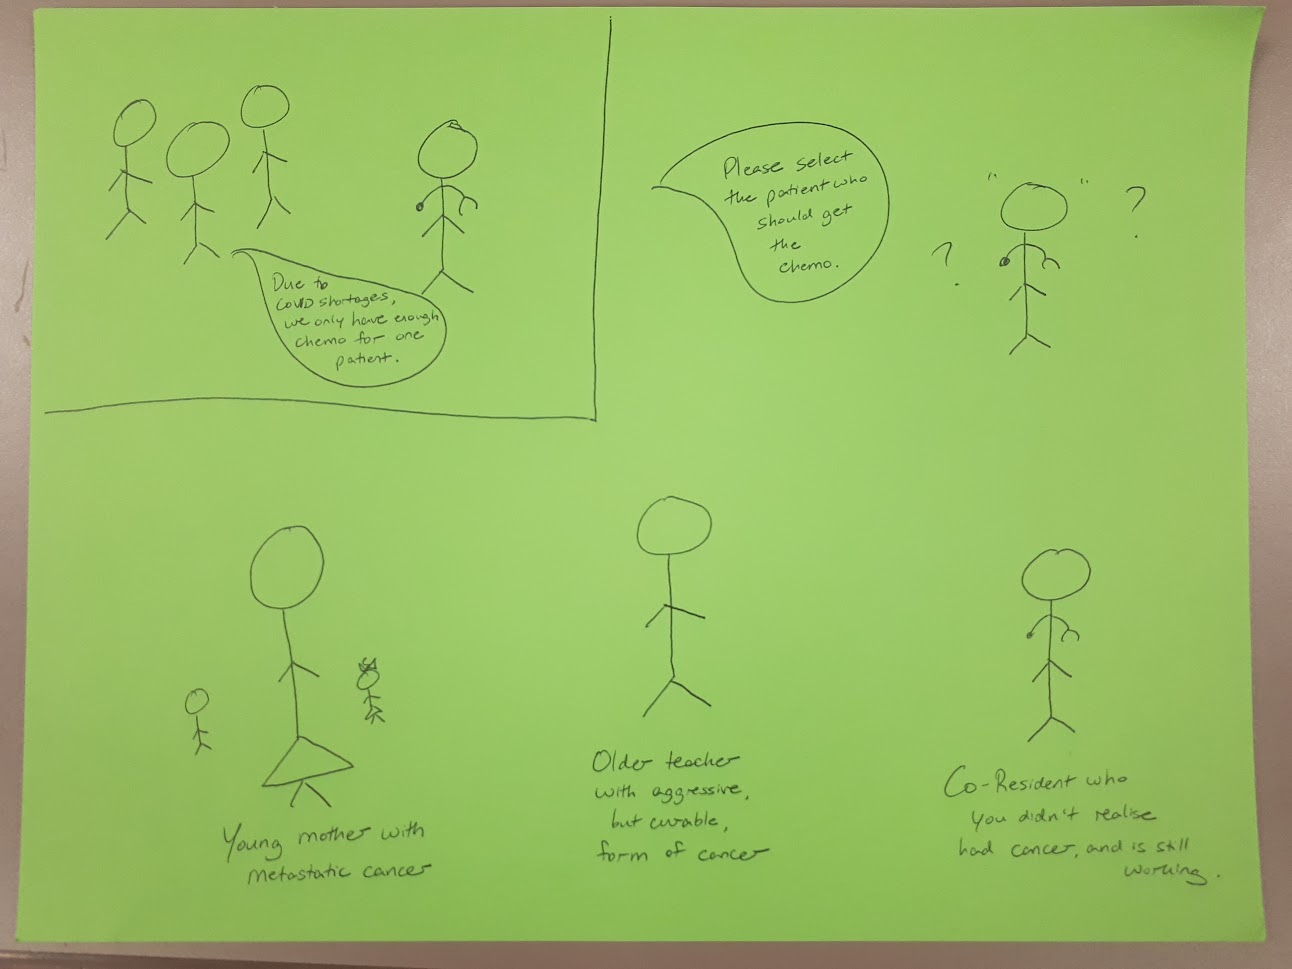 Due to
COVID shortages,
we only have enough
chemo for one
patient.
Please select
the patient who
should get
the
chemo.
" "
?
?
Young mother with
metastatic cancer
Older teacher
with aggressive,
but curable,
form of cancer
Co-Resident who
you didn't realise
had cancer, and is still
working.